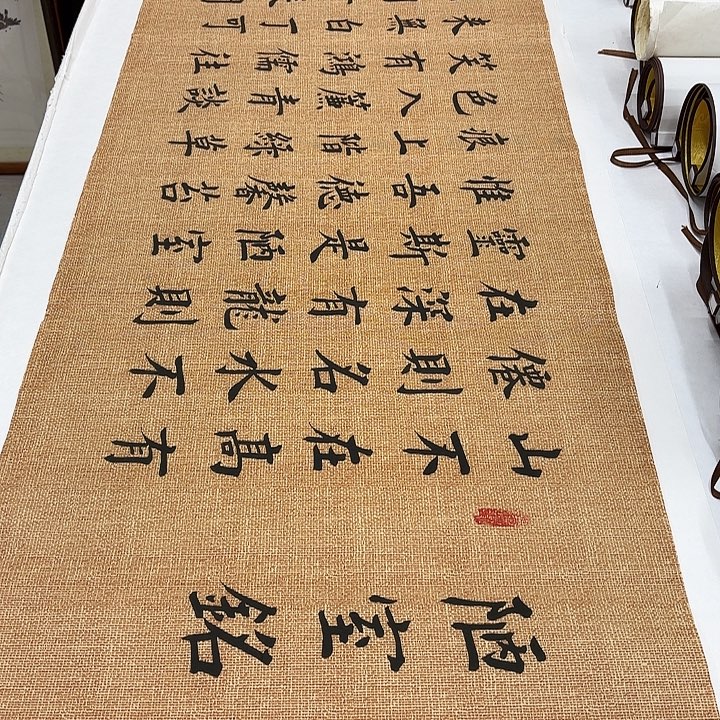 陋室銘
山不在高有
僊則名水不
在深有龍則
靈斯是陋室
惟吾德馨苔
痕上階綠草
色入簾青談
笑有鴻儒往
来無白丁可